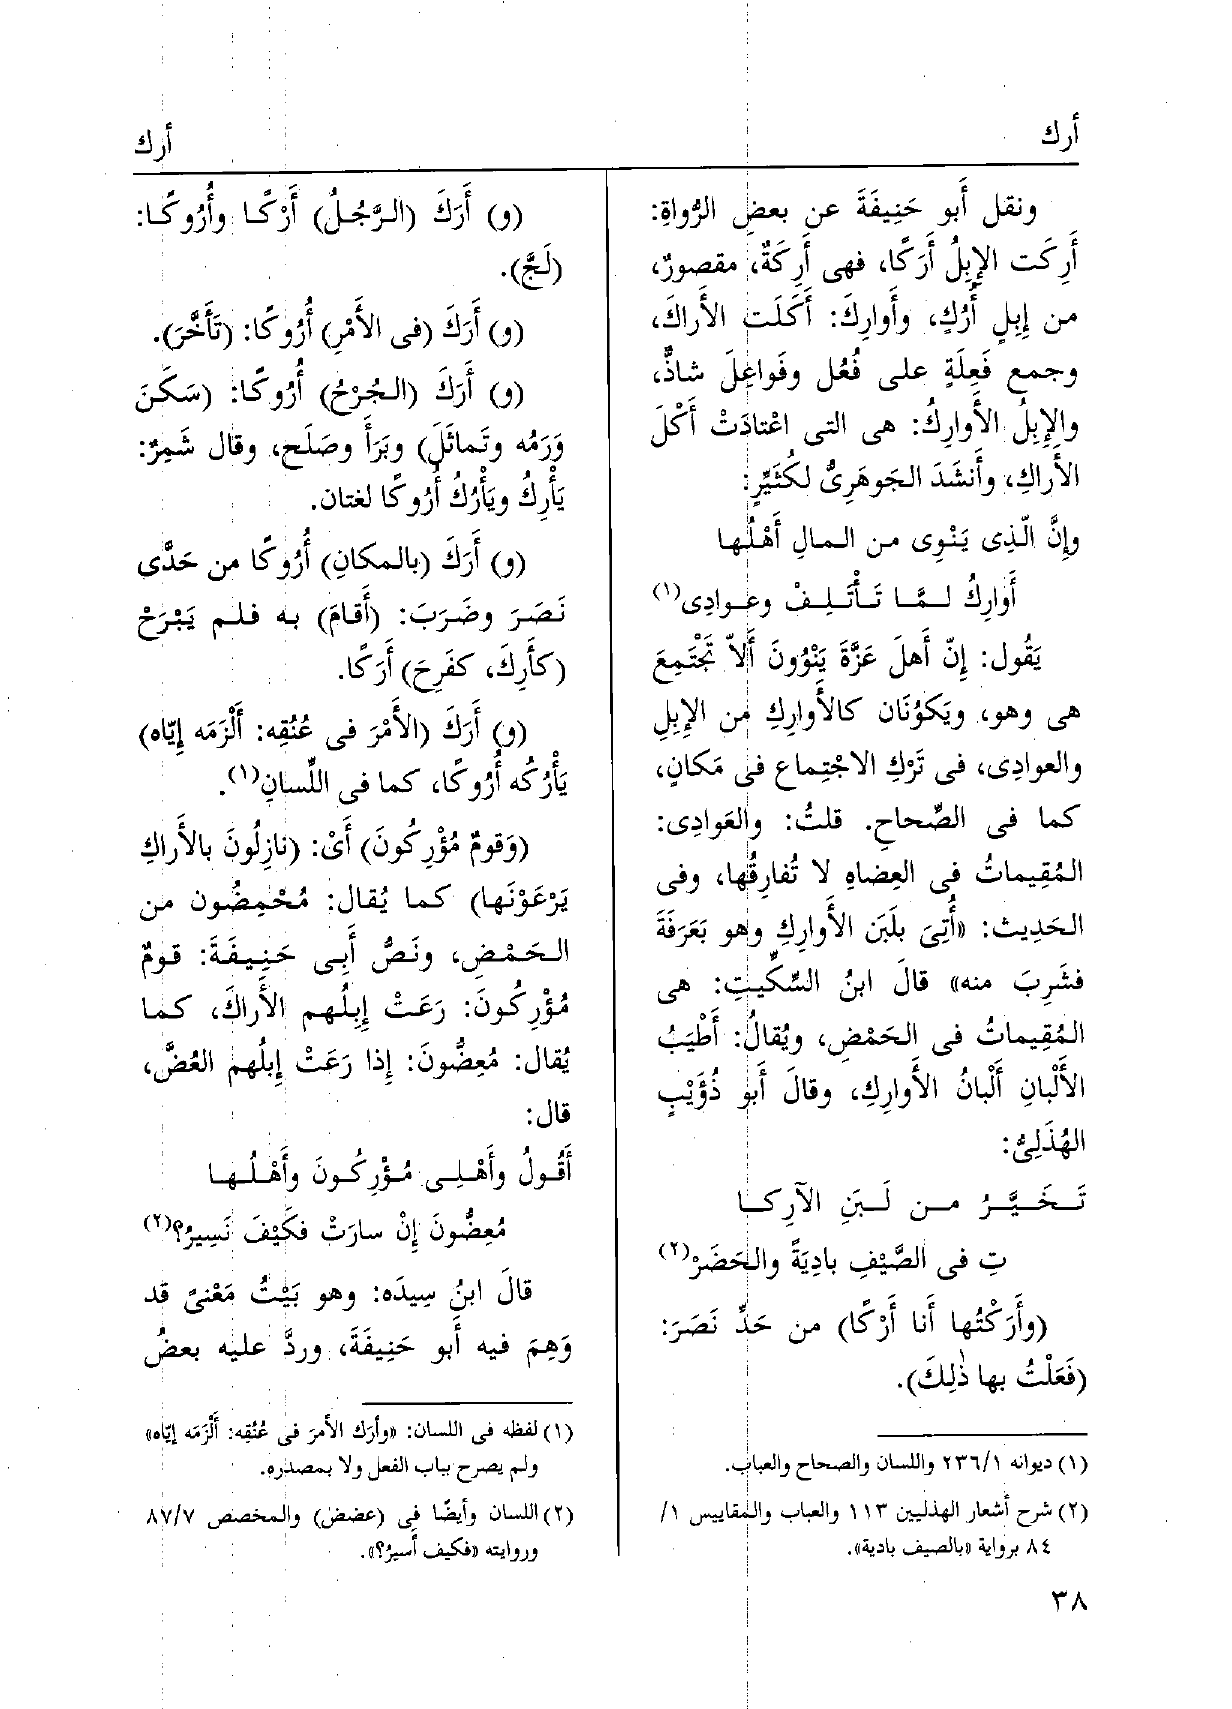 أرك
أرك
ونقل أَبو حَنِيفَةَ عن بعضِ الرُّواةِ:
أَرِكَت الإِبِلُ أَرَكًا، فهى أَرِكَةٌ، مقصورٌ،
من إِبِلٍ أُرُكٍ، وأَوارِكَ: أَكَلَت الأَراكَ،
وجمع فَعِلَةٍ على فُعُل وفَواعِلَ شاذٌّ،
والإِبِلُ الأَوارِكُ: هى التى اعْتادَتْ أَكْلَ
الأَراكِ، وأَنشَدَ الجَوهَرِىُّ لكُثَيِّرٍ:
وإِنَّ الَّذِى يَنْوِى من المالِ أَهْلُها
أَوارِكُ لمَّا تَأْتَلِفْ وعوادِى(١)
يَقُول: إِنّ أَهلَ عَزَّةَ يَنْوُونَ أَلاّ تَجْتَمِعَ
هى وهو، ويَكوُنَان كالأَوارِكِ من الإِبِلِ
والعوادِى، فى تَرْكِ الاجْتِماع فى مَكانٍ،
كما فى الصِّحاحِ. قلتُ: والعَوادِى:
المُقِيماتُ فى العِضاهِ لا تُفارِقُها، وفى
الحَدِيث: «أُتِىَ بلَبَن الأَوارِكِ وهو بَعَرَفَةَ
فشَرِبَ منه» قالَ ابنُ السِّكِّيتِ: هى
المُقِيماتُ فى الحَمْضِ، ويُقالُ: أَطْيَبُ
الأَلْبانِ أَلْبانُ الأَوارِكِ، وقالَ أَبو ذُؤَيْبٍ
الهُذَلِىُّ:
تَخَيَّرُ من لَبَنِ الآرِكا
تِ فى الصَّيْفِ بادِيَةً والحَضَرْ(٢)
(وأَرَكْتُها أَنا أَرْكًا) من حَدِّ نَصَرَ:
(فَعَلْتُ بها ذٰلِكَ).
(١) ديوانه ٢٣٦/١ واللسان والصحاح والعباب.
(٢) شرح أشعار الهذليين ١١٣ والعباب والمقاييس ١/
٨٤ برواية «بالصيف بادية».
(و) أَرَكَ (الرَّجُلُ) أَرْكًا وأُرُوكًا:
(لَجَّ).
(و) أَرَكَ (فى الأَمْرِ) أُرُوكًا: (تَأَخَّرَ).
(و) أَرَكَ (الجُرْحُ) أُرُوكًا: (سَكَنَ
وَرَمُه وتَماثَلَ) وبَرَأَ وصَلَح، وقال شَمِرٌ:
يَأْرِكُ ويَأْرُكُ أُرُوكًا لغتان.
(و) أَرَكَ (بالمكانِ) أُرُوكًا من حَدَّى
نَصَرَ وضَرَبَ: (أَقامَ) به فلم يَبْرَحْ
(كأَرِكَ، كفَرِحَ) أَرَكًا.
(و) أَرَكَ (الأَمْرَ فى عُنُقِه: أَلْزَمَه إِيّاه)
يَأْرُكه أُرُوكًا، كما فى اللِّسانِ(١).
(وَقومٌ مُؤْرِكُونَ) أَىْ: (نازِلُونَ بالأَراكِ
يَرْعَوْنَها) كما يُقال: مُحْمِضُون من
الحَمْضِ، ونَصُّ أَبِى حَنِيفَةَ: قومٌ
مُؤْرِكُونَ: رَعَتْ إِبِلُهم الأَراكَ، كما
يُقال: مُعِضُّونَ: إِذا رَعَتْ إِبلُهم العُضَّ،
قال:
أَقُولُ وأَهْلِى مُؤْرِكُونَ وأَهْلُها
مُعِضُّونَ إِنْ سارَتْ فكَيْفَ نَسِيرُ؟(٢)
قالَ ابنُ سِيدَه: وهو بَيْتُ مَعْنىً قد
وَهِمَ فيه أَبو حَنِيفَةَ، وردَّ عليه بعضُ
(١) لفظه فى اللسان: «وأَرَك الأمرَ فى عُنُقِه: أَلْزَمَه إيّاه»
ولم يصرح بباب الفعل ولا بمصدره.
(٢) اللسان وأيضًا فى (عضض) والمخصص ٨٧/٧
وروايته «فكيف أسيرُ؟».
٣٨